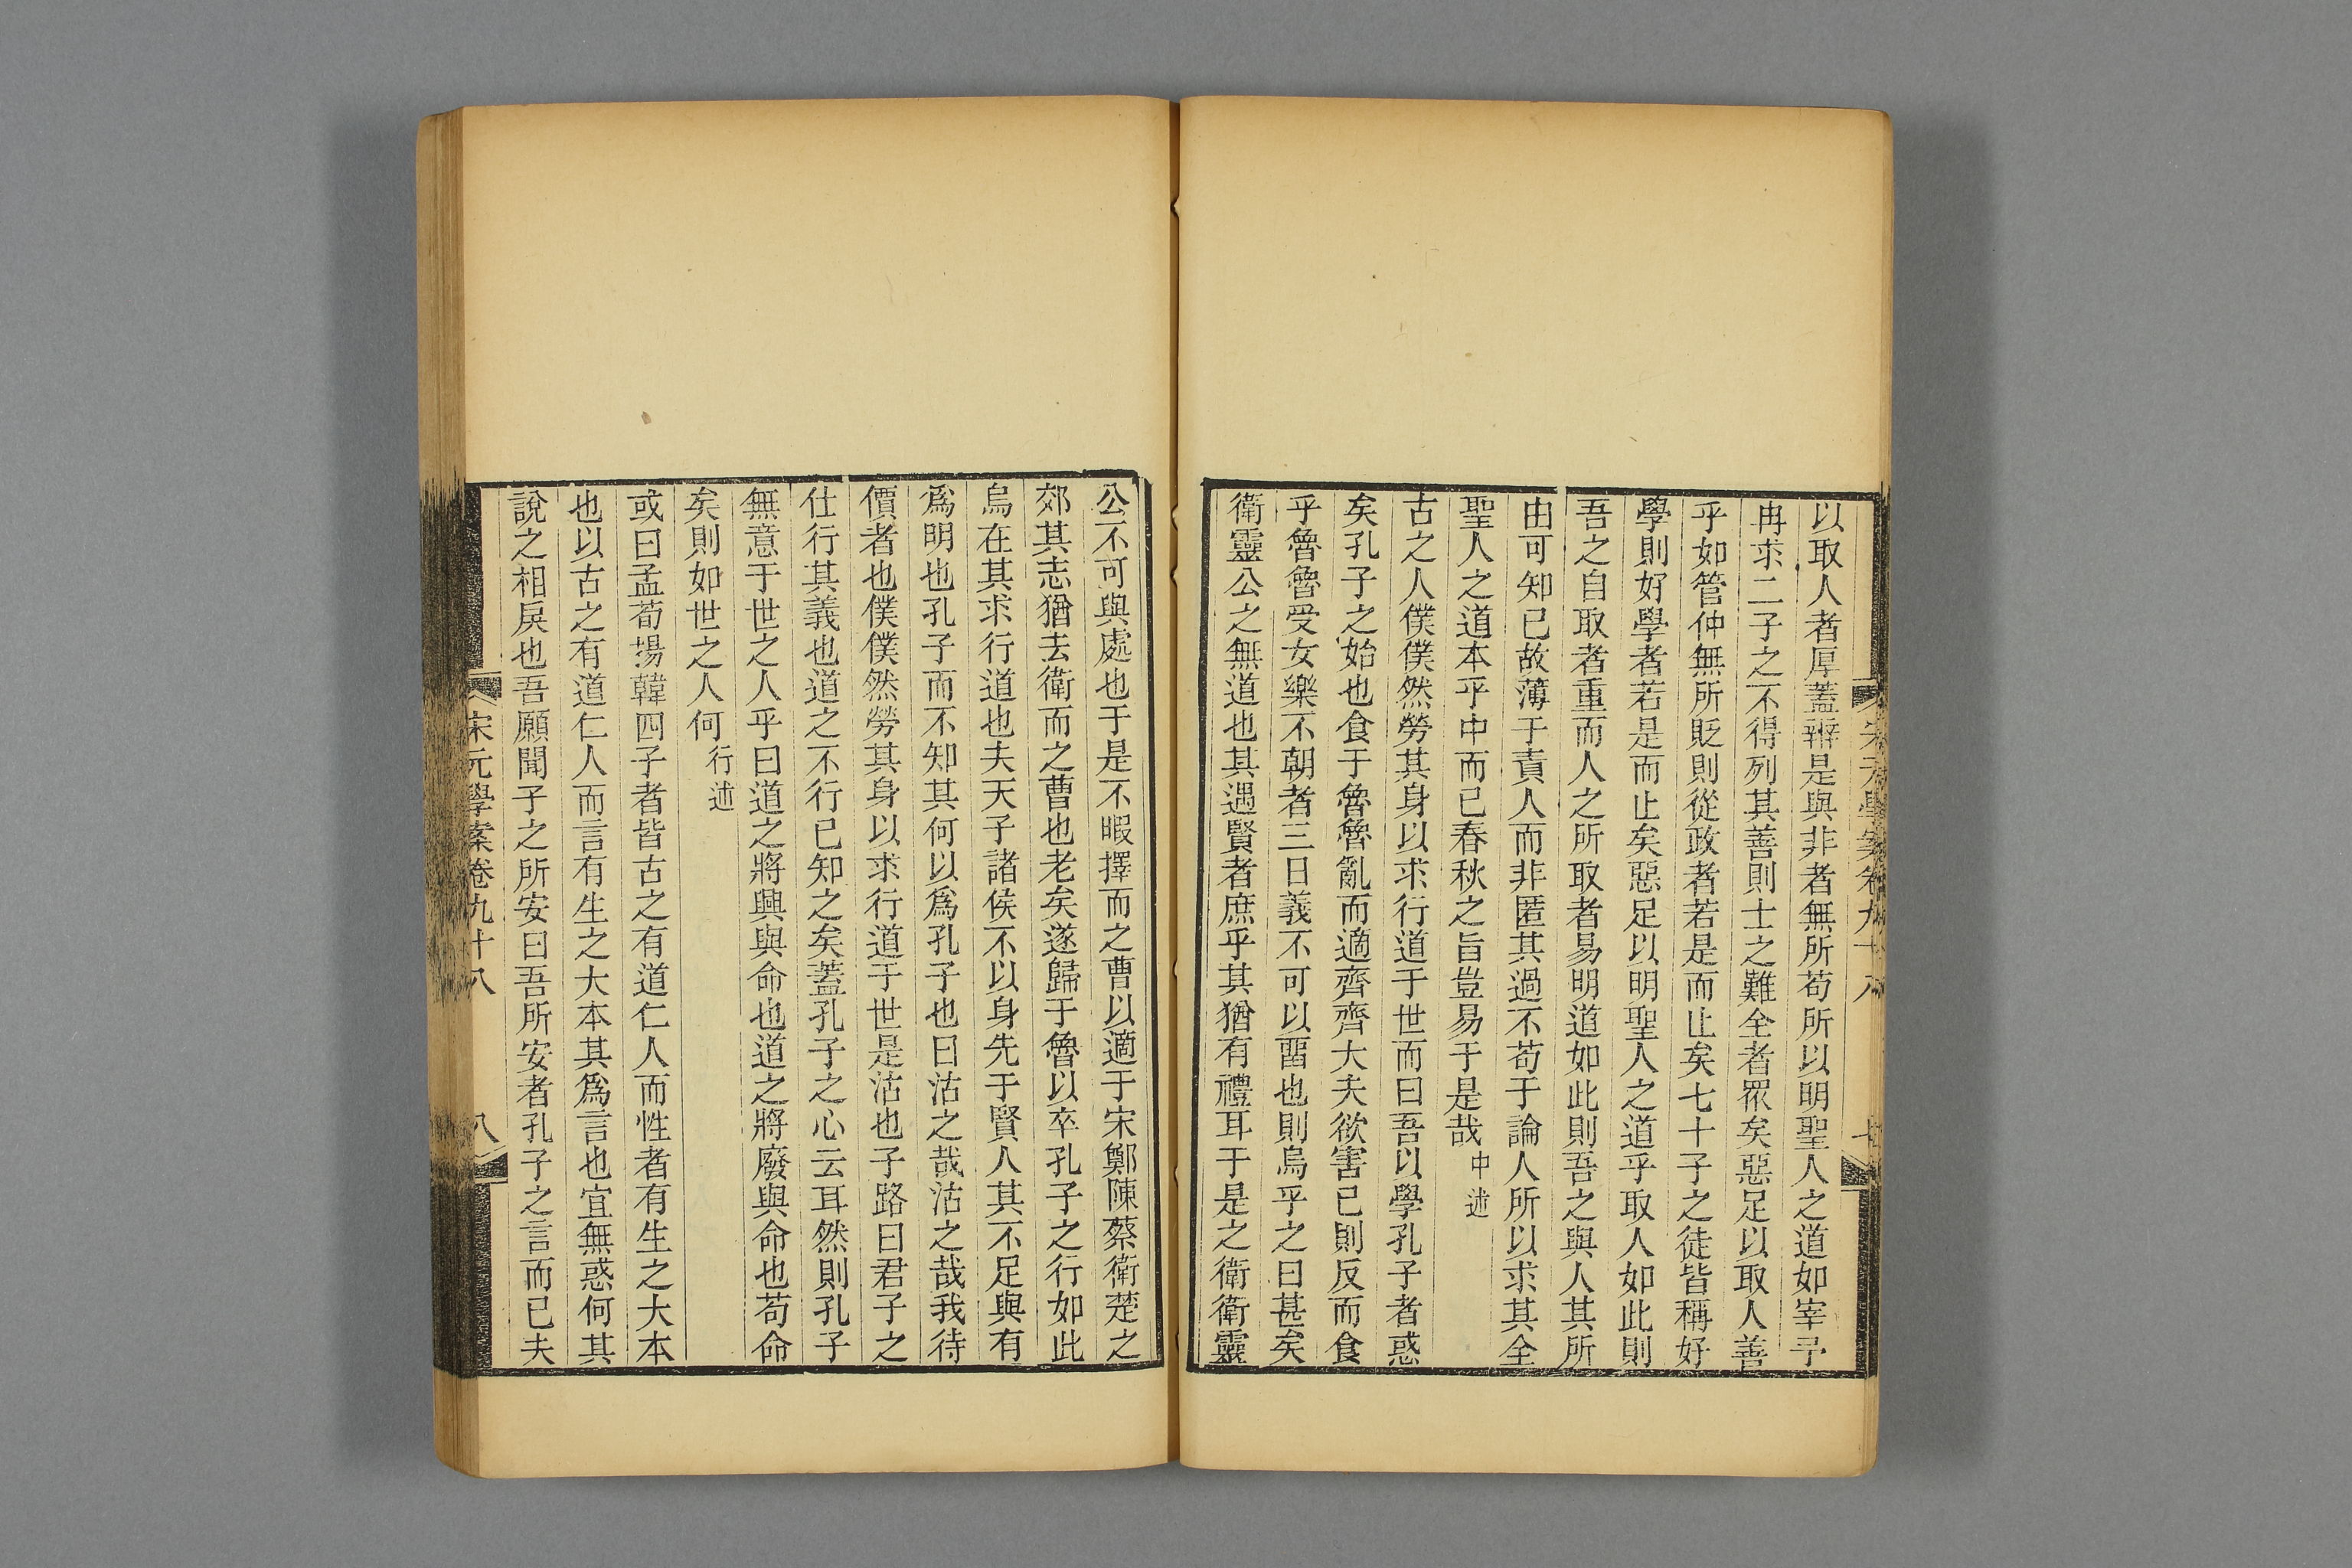 宋元學案卷九十八
以取人者厚蓋辨是與非者無所苟所以明聖人之道如宰予
冉求二子之不得列其善則士之難全者眾矣惡足以取人善
乎如管仲無所貶則從政者若是而止矣七十子之徒皆稱好
學則好學者若是而止矣惡足以明聖人之道乎取人如此則
吾之自取者重而人之所取者易明道如此則吾之與人其所
由可知已故薄于責人而非匿其過不苟于論人所以求其全
聖人之道本乎中而已春秋之旨豈易于是哉中述
古之人僕僕然勞其身以求行道于世而曰吾以學孔子者惑
矣孔子之始也食于魯魯亂而適齊齊大夫欲害已則反而食
乎魯魯受女樂不朝者三日義不可以畱也則烏乎之曰甚矣
衛靈公之無道也其遇賢者庶乎其猶有禮耳于是之衛衛靈
公不可與處也于是不暇擇而之曹以適于宋鄭陳蔡衛楚之
郊其志猶去衛而之曹也老矣遂歸于魯以卒孔子之行如此
烏在其求行道也夫天子諸侯不以身先于賢人其不足與有
爲明也孔子而不知其何以爲孔子也曰沽之哉沽之哉我待
價者也僕僕然勞其身以求行道于世是沽也子路曰君子之
仕行其義也道之不行已知之矣蓋孔子之心云耳然則孔子
無意于世之人乎曰道之將興與命也道之將廢與命也苟命
矣則如世之人何行述
或曰孟荀揚韓四子者皆古之有道仁人而性者有生之大本
也以古之有道仁人而言有生之大本其爲言也宜無惑何其
說之相戾也吾願聞子之所安曰吾所安者孔子之言而已夫
宋元學案卷九十八
八